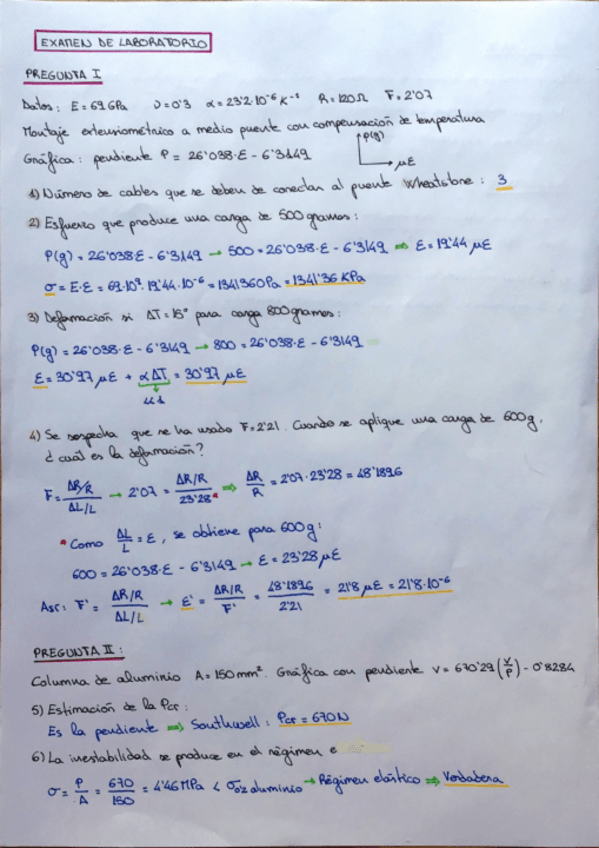 EXAMEN DE LABORATORIO
PREGUNTA I
Datos: E = 69 GPa ν = 0'3 α = 23'2·10⁻⁶ K⁻¹ R = 120 Ω F = 2'07
Montaje extensiométrico a medio puente con compensación de temperatura
P(g)
Gráfica: pendiente P = 26'038·ε - 6'3149
με
1) Número de cables que se deben de conectar al puente Wheatstone: 3
2) Esfuerzo que produce una carga de 500 gramos:
P(g) = 26'038·ε - 6'3149 → 500 = 26'038·ε - 6'3149 ⇒ ε = 19'44 με
σ = E·ε = 69·10⁹·19'44·10⁻⁶ = 1341360 Pa = 1341'36 KPa
3) Deformación si ΔT = 15° para carga 800 gramos:
P(g) = 26'038·ε - 6'3149 → 800 = 26'038·ε - 6'3149
ε = 30'97 με + αΔT = 30'97 με
<<1
4) Se sospecha que se ha usado F = 2'21. Cuando se aplique una carga de 600 g,
¿cuál es la deformación?
F = (ΔR/R)/(ΔL/L) → 2'07 = (ΔR/R)/23'28* ⇒ ΔR/R = 2'07·23'28 = 48'1896
*Como ΔL/L = ε, se obtiene para 600 g:
600 = 26'038·ε - 6'3149 → ε = 23'28 με
Así: F' = (ΔR/R)/(ΔL/L) → ε' = (ΔR/R)/F' = 48'1896/2'21 = 21'8 με = 21'8·10⁻⁶
PREGUNTA II:
Columna de aluminio A = 150 mm². Gráfica con pendiente v = 670'29 (v/P) - 0'8284
5) Estimación de la Pcr:
Es la pendiente ⇒ Southwell: Pcr = 670 N
6) La inestabilidad se produce en el régimen e
σ = P/A = 670/150 = 4'46 MPa < σ0'2 aluminio → Régimen elástico ⇒ Verdadera